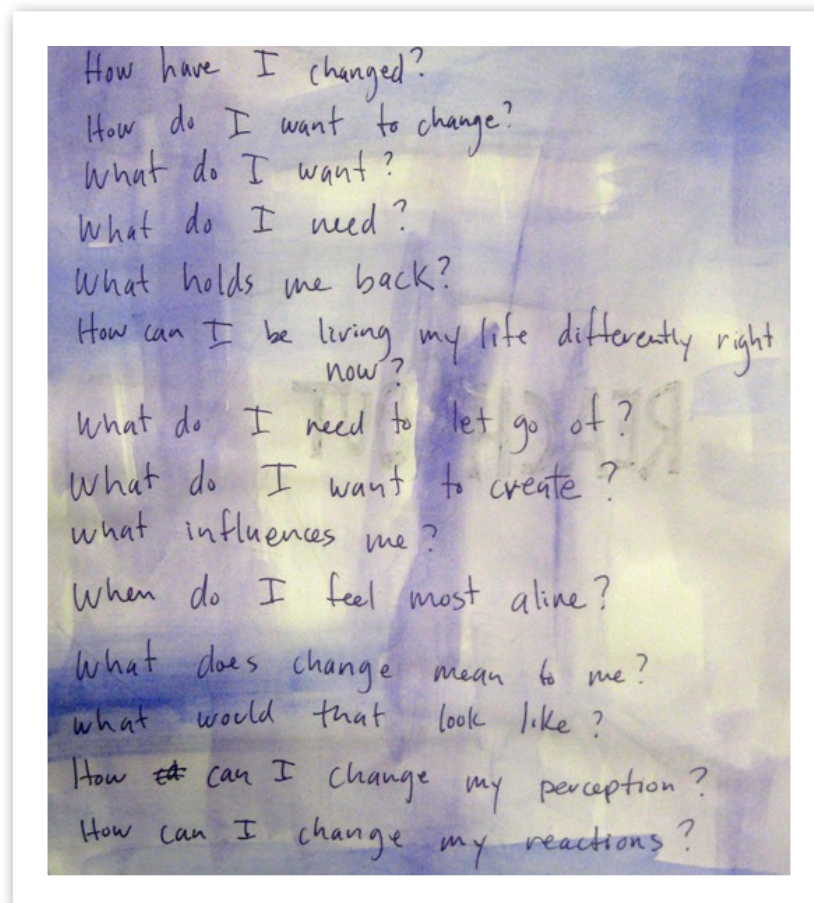 How have I changed?
How do I want to change?
What do I want?
What do I need?
What holds me back?
How can I be living my life differently right
now?
REACH OUT
What do I need to let go of?
What do I want to create?
what influences me?
When do I feel most alive?
What does change mean to me?
what would that look like?
How can I change my perception?
How can I change my reactions?